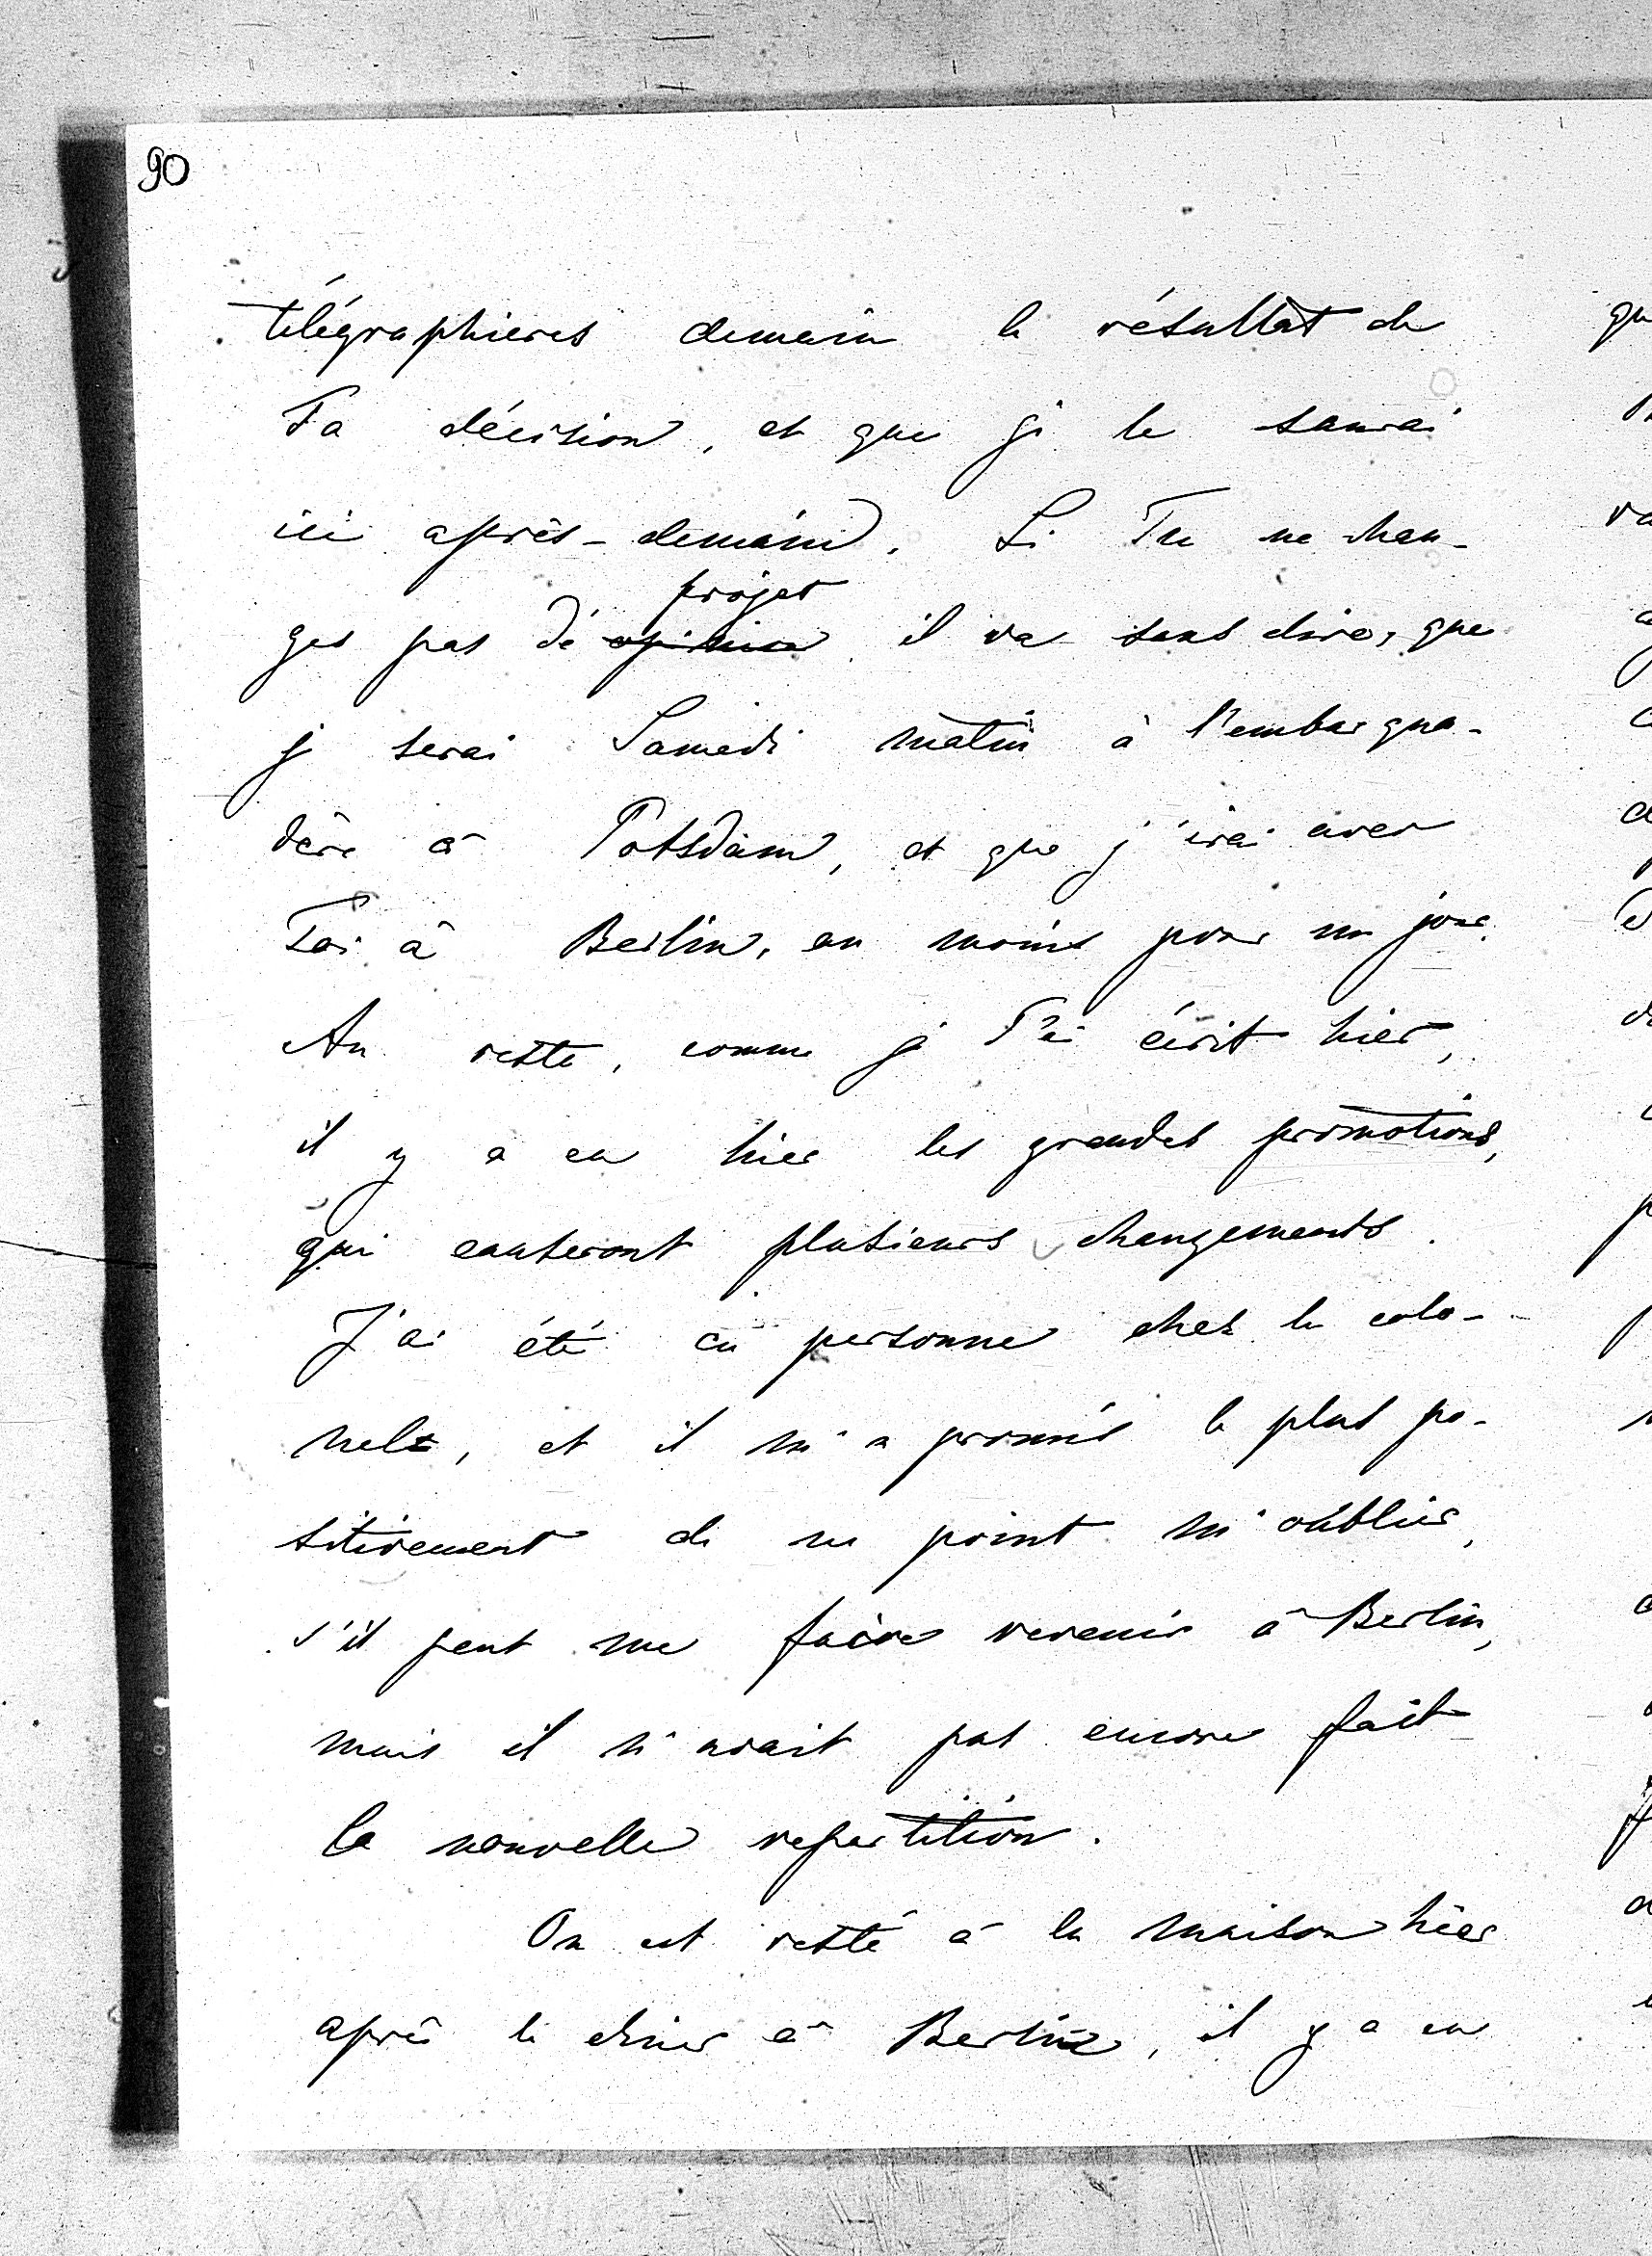 90
télégraphieres demain le résultat de
Ta décision, et que je le saurai
ici après-demain. Si Tu ne chan-
projet
ges pas de opinion il va sans dire, que
je serai Samedi matin à l'embarqua-
dère à Potsdam, et que j'irai avec
Toi à Berlin, au moins pour un jour.
Au reste, comme je T'ai écrit hier,
il y a eu hier les grandes promotions,
qui causeront plusieurs changements.
J'ai été en personne chez le colo-
nel, et il m'a promis le plus po-
sitivement de ne point m'oublier,
s'il peut me faire revenir à Berlin,
mais il n'avait pas encore fait
la nouvelle repartition.
On est resté à la maison hier
après le diner à Berlin, il y a eu